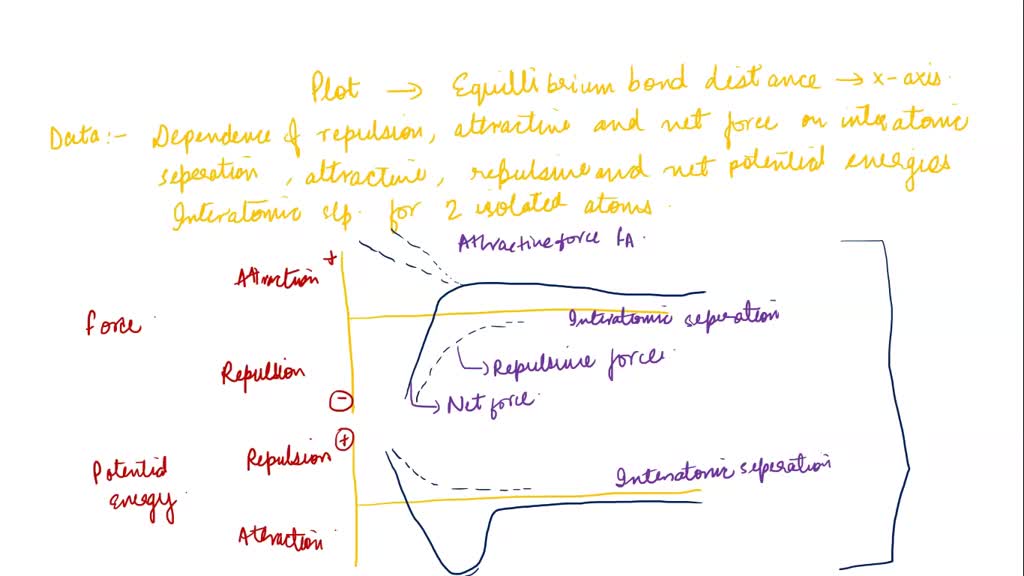 Plot → Equillibrium bond distance → x-axis.
Data:- Dependence of repulsion, attractive and net force on interatomic
seperation, attractive, repulsive and net potential energies
Interatomic sep. for 2 isolated atoms.
Attractive force fA.
+
Attraction
Interatomic seperation
force
Repulsive force.
Repulsion
-
Net force.
+
Repulsion
Interatomic seperation
Potential
energy
Attraction